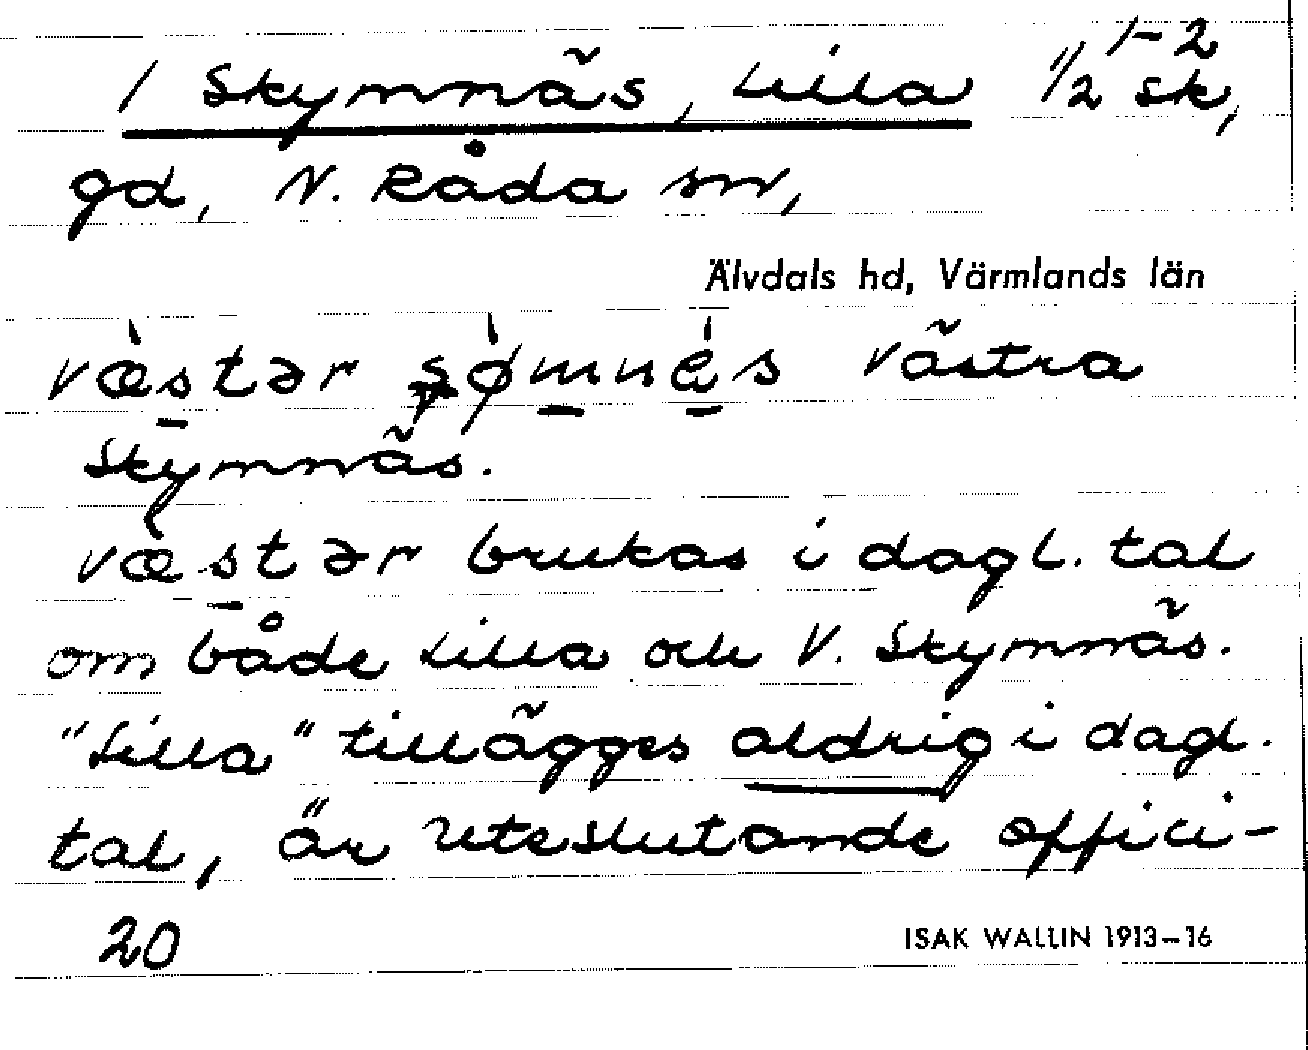 1 Skymnäs, Lilla 1/2 sk, 1–2
gd, N. Råda sn,
Älvdals hd, Värmlands län
væ̀stər ʂø̀mnès västra
Skymnäs.
væ̀stər brukas i dagl. tal
om både Lilla och V. Skymnäs.
"Lilla" tillägges aldrig i dagl.
tal, är uteslutande offici-
20
ISAK WALLIN 1913–16